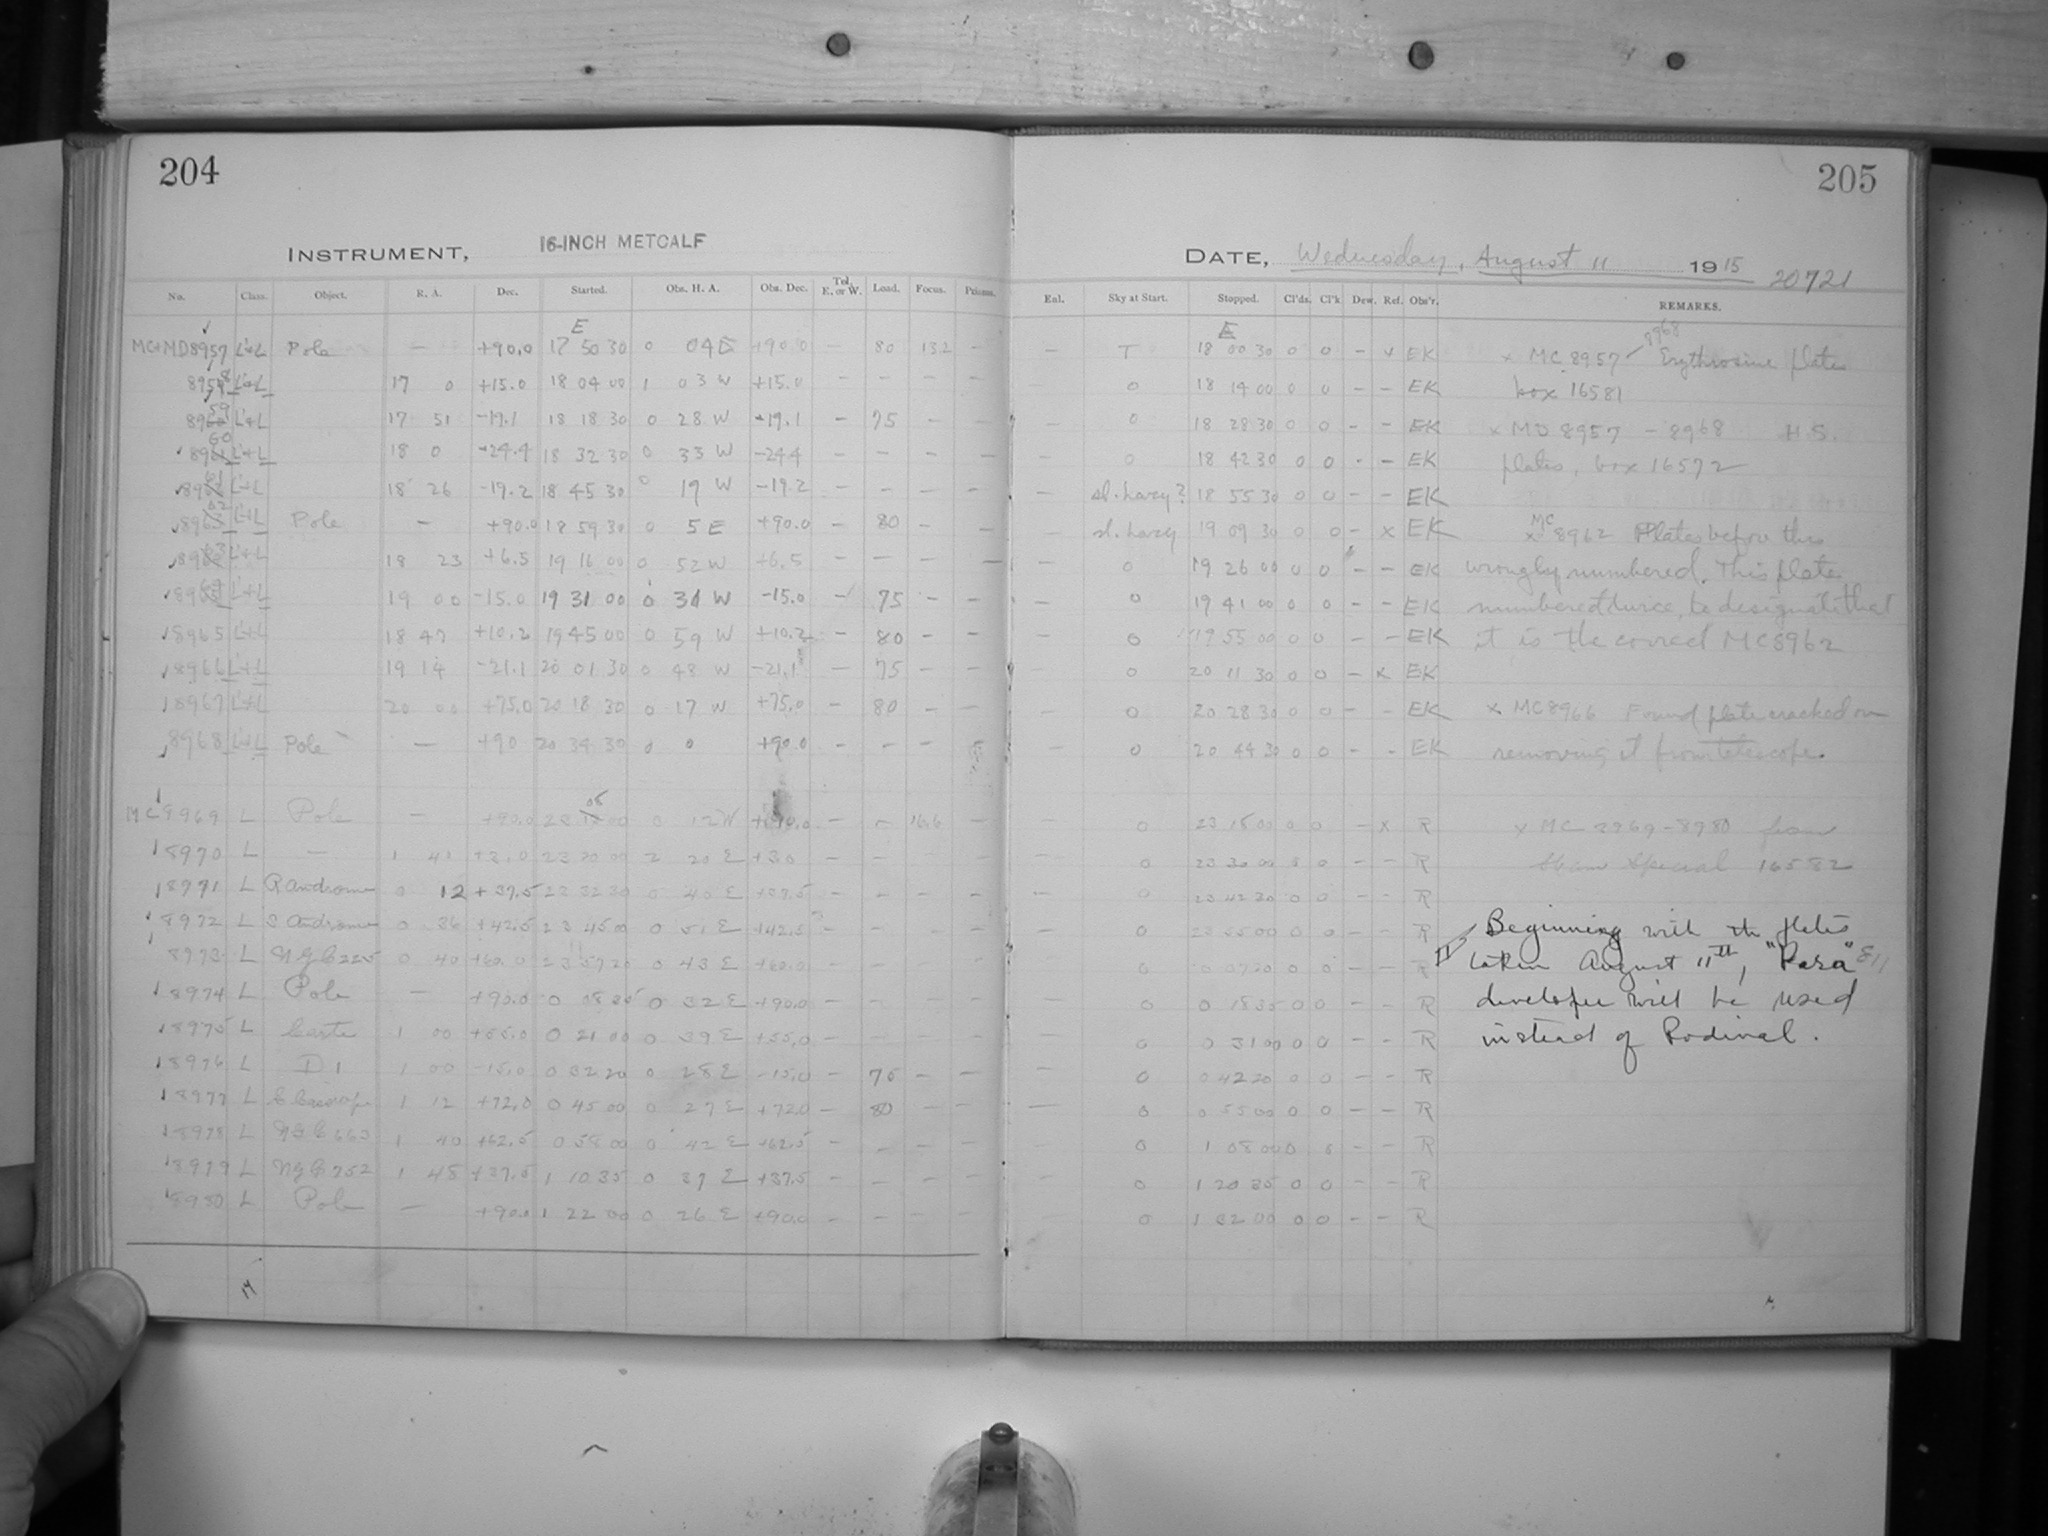 204
INSTRUMENT, 16-INCH METCALF
No. Class. Object. R. A. Dec. Started. Obs. H. A. Obs. Dec. Tel. E. or W. Load. Focus. Prisms.
E
MC+MD8957 L'+L Pole — +90.0 17 50 30 0 04 E +90.0 — 80 13.2 —
8958 L'+L 17 0 +15.0 18 04 00 1 03 W +15.0 — — — —
8959 L'+L 17 51 -19.1 18 18 30 0 28 W -19.1 — 75 — —
8960 L'+L 18 0 -24.4 18 32 30 0 33 W -24.4 — — — —
8961 L'+L 18 26 -19.2 18 45 30 0 19 W -19.2 — — — —
8962 L'+L Pole — +90.0 18 59 30 0 5 E +90.0 — 80 — —
8963 L'+L 18 23 +6.5 19 16 00 0 52 W +6.5 — — — —
8964 L'+L 19 00 -15.0 19 31 00 0 34 W -15.0 — 75 — —
8965 L'+L 18 47 +10.2 19 45 00 0 59 W +10.2 — 80 — —
8966 L'+L 19 14 -21.1 20 01 30 0 48 W -21.1 — 75 — —
8967 L'+L 20 00 +75.0 20 18 30 0 17 W +75.0 — 80 — —
8968 L'+L Pole — +90 20 34 30 0 0 +90.0 — — —
MC 8969 L Pole — +90.0 23 05 00 0 12 W +90.0 — — 16.6 —
8970 L — 1 40 +3.0 23 20 00 2 20 E +3.0 — — — —
8971 L R Androm 0 12 +37.5 23 32 30 0 40 E +37.5 — — — —
8972 L S Androm 0 36 +42.5 23 45 00 0 51 E +42.5 — — — —
8973 L NGC 225 0 40 +60.0 23 57 20 0 43 E +60.0 — — — —
8974 L Pole — +90.0 0 08 35 0 32 E +90.0 — — — —
8975 L 1 00 +55.0 0 21 00 0 39 E +55.0 — — — —
8976 L D 1 1 00 -15.0 0 32 20 0 28 E -15.0 — 75 — —
8977 L 1 12 +72.0 0 45 00 0 27 E +72.0 — 80 — —
8978 L NGC 663 1 40 +62.5 0 58 00 0 42 E +62.5 — — — —
8979 L NGC 752 1 48 +37.5 1 10 35 0 37 E +37.5 — — — —
8980 L Pole — +90.0 1 22 00 0 26 E +90.0 — — — —
205
DATE, Wednesday, August 11 1915 20721
Enl. Sky at Start. Stopped. Cl'ds. Cl'k Dew. Ref. Obs'r. REMARKS.
E
— T 18 00 30 0 0 — x EK
— 0 18 14 00 0 0 — — EK
— 0 18 28 30 0 0 — — EK
— 0 18 42 30 0 0 — — EK
— sl. hazy? 18 55 30 0 0 — — EK
— sl. hazy 19 09 30 0 0 — x EK
— 0 19 26 00 0 0 — — EK
— 0 19 41 00 0 0 — — EK
— 0 19 55 00 0 0 — — EK
— 0 20 11 30 0 0 — x EK
— 0 20 28 30 0 0 — — EK
— 0 20 44 30 0 0 — — EK
0 23 15 00 0 0 — x R
0 23 30 00 0 0 — — R
— 0 23 42 30 0 0 — — R
— 0 23 55 00 0 0 — — R
— 0 0 07 20 0 0 — — R
— 0 0 18 35 0 0 — — R
— 0 0 31 00 0 0 — — R
— 0 0 42 20 0 0 — — R
— 0 0 55 00 0 0 — — R
0 1 08 00 0 0 — R
— 0 1 20 35 0 0 — — R
0 1 32 00 0 0 — — R
x MC 8957 – 8968 Erythrosine plates
box 16581
x MD 8957 – 8968 H.S.
plates, box 16572
x MC 8962 Plates before this
wrongly numbered. This plate
numbered twice, to designate that
it is the correct MC8962
x MC8966 Found plate cracked on
removing it from telescope.
x MC 8969–8980 from
Special 16582
Beginning with the plates
taken August 11th, "Rosa" 811
developer will be used
instead of Rodinal.